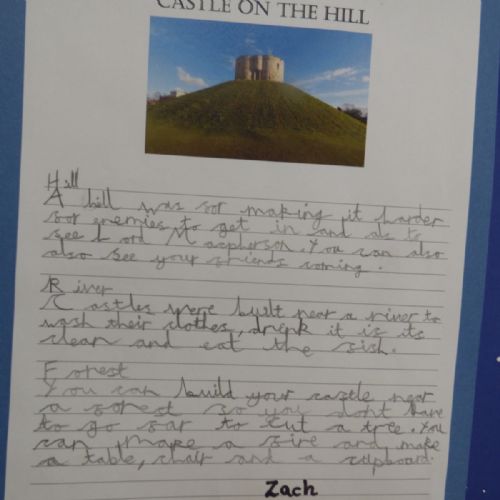 CASTLE ON THE HILL
Hill
A hill was for making it harder
for enemies to get in and as to
see Lord Macpherson. You can also
also see your friends coming.
River
Castles were built near a river to
wash their clothes, drink it is its
clean and eat the fish.
Forest
You can build your castle near
a forest so you dont have
to go far to cut a tree. You
can make a fire and make
a table, chair and a cupboard.
Zach